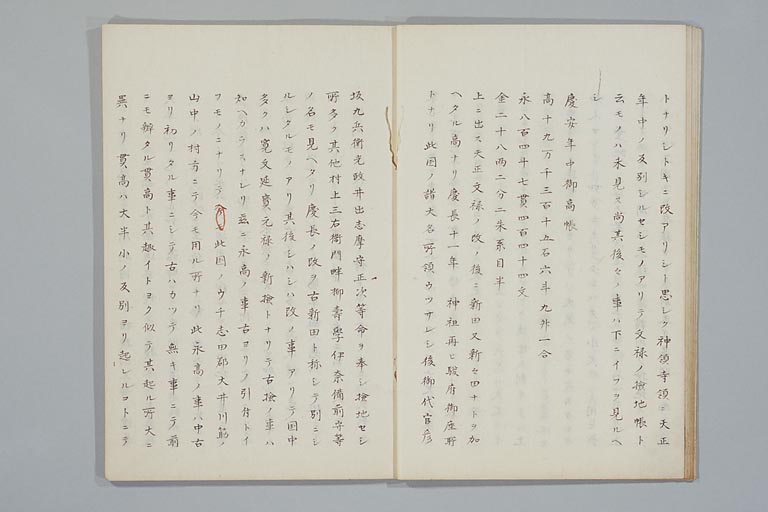 トナリシトキニ改アリシト思レヘ神領寺領ニ天正
年中ノ反別シルセシモノアリテ文禄ノ撿地帳ト
云モノハ未見ス尚其後々ノ事ハ下ニイフヲ見ルヘ
シ
慶安年中御高帳
高十九万千三百十五石六斗九升一合
永八百四斗七貫四百四十四文
金二十八両二分二朱糸目半
上ニ出ス天正文禄ノ改ノ後ニ新田又新々田ナトヲ加
ヘタル高ナリ慶長十一年 神祖再ヒ駿府御座所
トナリ此国ノ諸大名所領ウツサレシ後御代官彦
坂九兵衛光政井出志摩守正次等命ヲ奉シ撿地セシ
所多ク其他村上三右衛門畔柳壽學伊奈備前守等
ノ名モ見ヘタリ慶長ノ改ヲ古新田ト称シテ別ニシ
ルシタルモノアリ其後シハシハ改ノ事アリテ国中
多クハ寛文延寳元禄ノ新撿トナリテ古撿ノ事ハ
知ヘカラスナレリ茲ニ永高ノ事古ヨリノ引付トイ
フモノニナリテ此国ノウチ志田郡大井川筋ノ
山中ノ村方ニテ今モ用ル所ナリ此永高ノ事ハ中古
ヨリ初リタル事ニシテ古ハカツテ無キ事ニテ前
ニモ辨タル貫高ト其趣イトヨク似テ其起ル所大ニ
異ナリ貫高ハ大半小ノ反別ヨリ起レルコトニテ